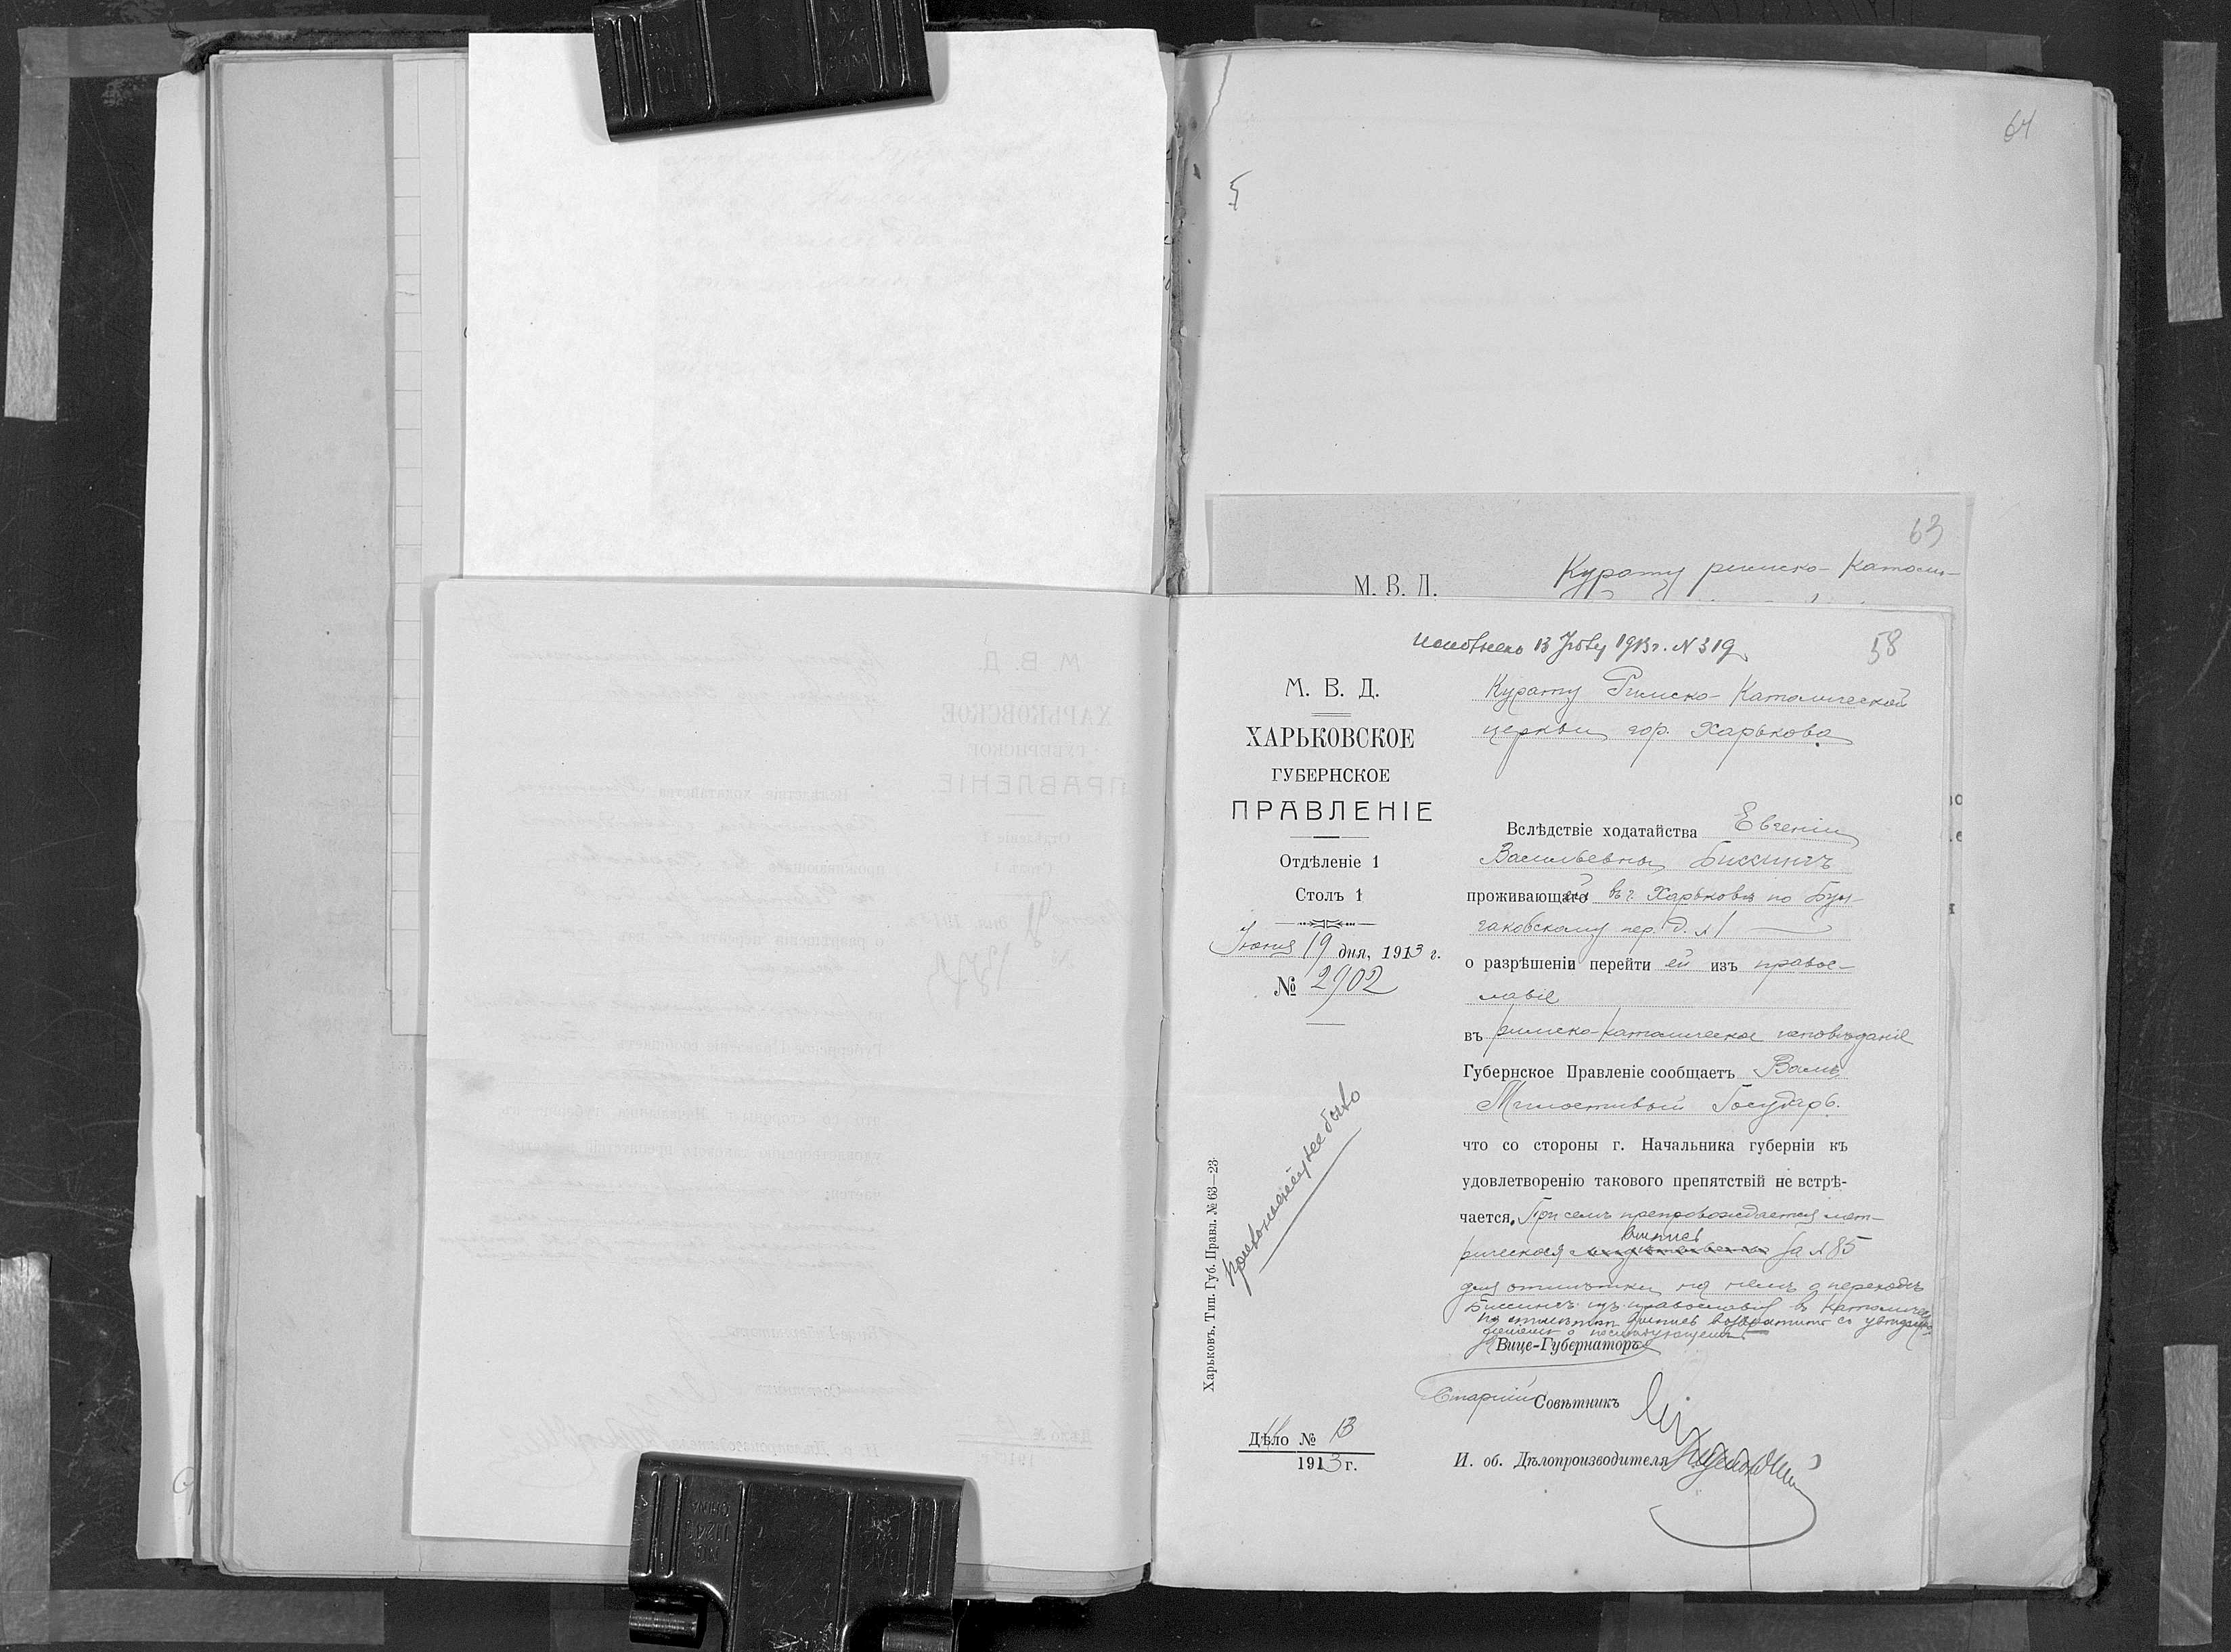 64
63
М. В. Д.
Курату римско-католи-
Исполнено 13 Іюля 1913 г. N 319
58
М. В. Д.
ХАРЬКОВСКОЕ
ГУБЕРНСКОЕ
ПРАВЛЕНІЕ
Отдѣленіе 1
Столъ 1
Іюня 19 дня, 1913 г.
№ 2902
Курату Римско-Католической
церкви гор. Харькова
Вслѣдствіе ходатайства Евгеніи
Васильевны Биссингъ
проживающаго въ г. Харьковѣ по Бул-
гаковскому пер. д. №1
о разрѣшеніи перейти ей изъ право-
славіе
въ римско-католическое исповѣданіе
Губернское Правленіе сообщаетъ Вамъ
Милостивый Государь.
что со стороны г. Начальника губерніи къ
удовлетворенію такового препятствій не встрѣ-
чается. При семъ препровождается мет-
рическая выпись за №85
для отмѣтки на немъ о переходѣ
Биссингъ изъ православія въ католичес
по отмѣткѣ выпись возвратить съ увѣдом-
леніемъ о послѣдующемъ.
Вице-Губернаторъ
Старшій Совѣтникъ
И. об. Дѣлопроизводителя
Дѣло № 13
1913 г.
Харьковъ. Тип. Губ. Правл. № 63—23